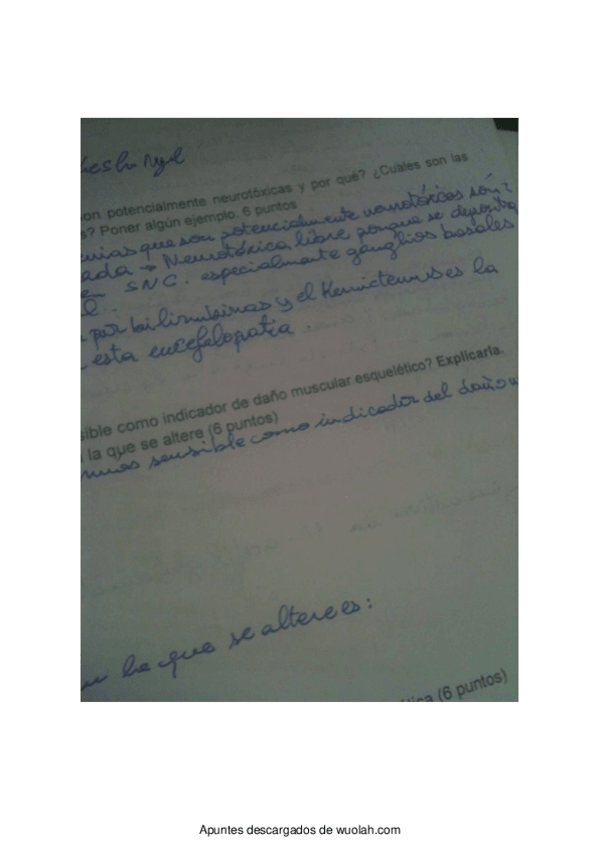 von potencialmente neurotóxicas y por qué? ¿Cuáles son las
s? Poner algún ejemplo. 6 puntos
que son potencialmente neurotóxicas són:
ada → Neurotóxica libre porque se deposita
en SNC. especialmente ganglios basales
por bilirrubinas y el Kernicterus es la
esta encefalopatia.
sible como indicador de daño muscular esquelético? Explicarla.
la que se altere (6 puntos)
sensible como indicador del daño
la que se altere es:
ética (6 puntos)
Apuntes descargados de wuolah.com